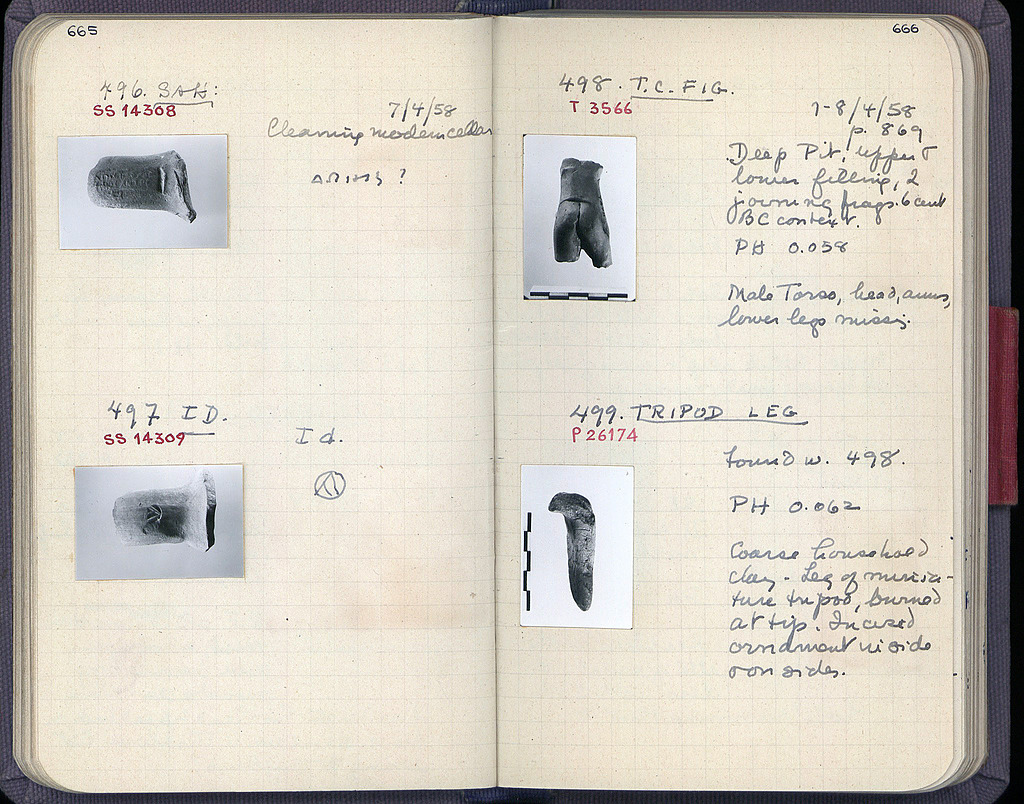 665
496. SAH:
SS 14308
7/4/58
Cleaning modern cellar
?
497 ID.
SS 14309
Id.
666
498. T.C. FIG.
T 3566
7-8/4/58
p. 869
Deep Pit, upper &
lower filling, 2
joining frags. 6 cent
BC context.
PH 0.058
Male Torso, head, arms,
lower legs missing.
499. TRIPOD LEG
P 26174
Found w. 498.
PH 0.062
Coarse household
clay - Leg of minia-
ture tripod, burned
at tip. Incised
ornament inside
& on sides.